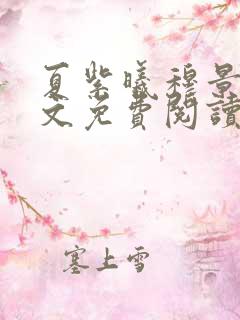 夏紫曦穆景
文免費閱讀
塞上雪